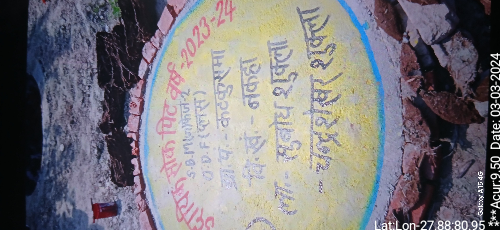 सोक पिट वर्ष-2023-24
S.B.M(G)फेज-2
O.D.F(प्लस)
ग्रा.पं.-कटकुसमा
वि.खं.-नकहा
ला.- सुबोध शुक्ला
चन्द्रशेखर शुक्ला
Galaxy A15 4G
Lat:Lon-27.88:80.95
***Acur:9.50 Date: 03-03-2024